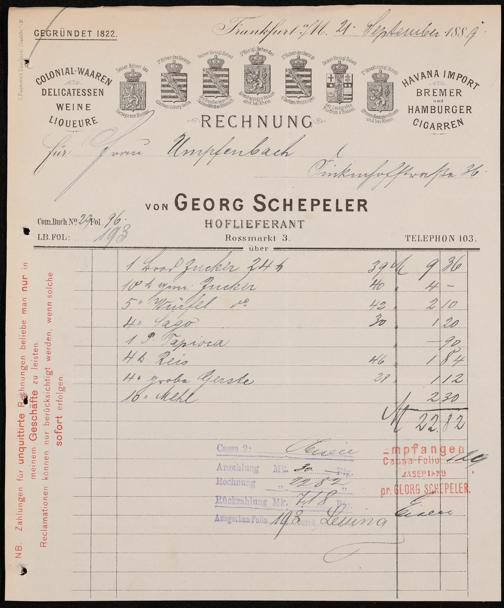 GEGRÜNDET 1822.
Frankfurt a/M. 21. September 1889.
COLONIAL-WAAREN
DELICATESSEN
WEINE
LIQUEURE
HAVANA IMPORT
BREMER
und
HAMBURGER
CIGARREN
RECHNUNG
für Frau Umpfenbach
36
VON GEORG SCHEPELER
HOFLIEFERANT
Rossmarkt 3.
TELEPHON 103.
Com.Buch No. 29 Fol. 96.
LB.FOL: 193
über
1 Brod Zucker 24 ℔ 39 M 9 36
10 ℔ gem. Zucker 40 4 –
5 " Würfel do. 42 2 10
4 " Sago 30 1 20
1 P. Tapioca – 90
4 ℔ Reis 46 1 84
4 " grobe Gerste 28 1 12
16 " Mehl 2 30
M 22.82
Cassa 2:
Anzahlung Mk. 30 Pfg.
Rechnung " 22 82 "
Rückzahlung Mk. 7.18 Pf.
Ausgaben Folio 198
Empfangen
Cassa-Folio
pr. GEORG SCHEPELER.
NB. Zahlungen für unquittirte Rechnungen beliebe man nur in
meinem Geschäfte zu leisten.
Reclamationen können nur berücksichtigt werden, wenn solche
sofort erfolgen